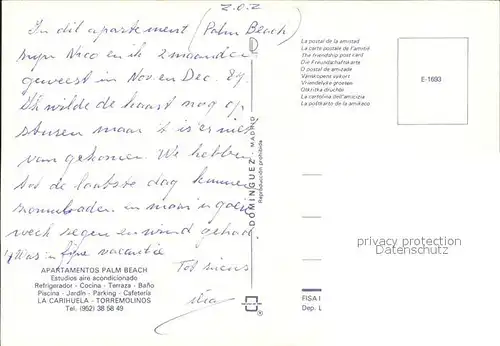 Z.O.Z
In dit apartement (Palm Beach)
zijn Nico en ik 2 maanden
geweest in Nov. en Dec. 89.
Ik wilde de kaart nog op
sturen maar 't is er niet
van gekomen. We hebben
tot de laatste dag kunnen
zonnebaden en maar 1 goeie
week regen en wind gehad.
't Was 'n fijne vacantie
Tot ziens
APARTAMENTOS PALM BEACH
Estudios aire acondicionado
Refrigerador - Cocina - Terraza - Baño
Piscina - Jardín - Parking - Cafetería
LA CARIHUELA - TORREMOLINOS
Tel. (952) 38 58 49
DOMINGUEZ - MADRID
Reproducción prohibida
La postal de la amistad
La carte postale de l'amitié
The friendship post card
Die Freundschaftskarte
O postal de amizade
Vänskapens vykort
Vriendelijke groeten
La cartolina dell'amicizia
E-1693
privacy protection
Datenschutz
FISA I
Dep. L